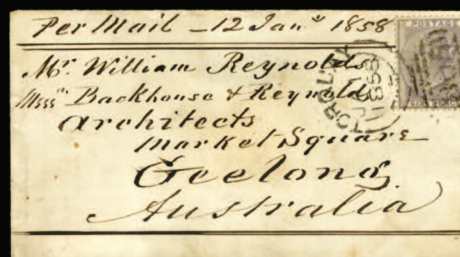 Per Mail - 12 Janʸ 1858
Mr. William Reynolds
Messrs Backhouse & Reynolds
architects
Market Square
Geelong
Australia
POSTAGE
TORQUAY
JA
1858